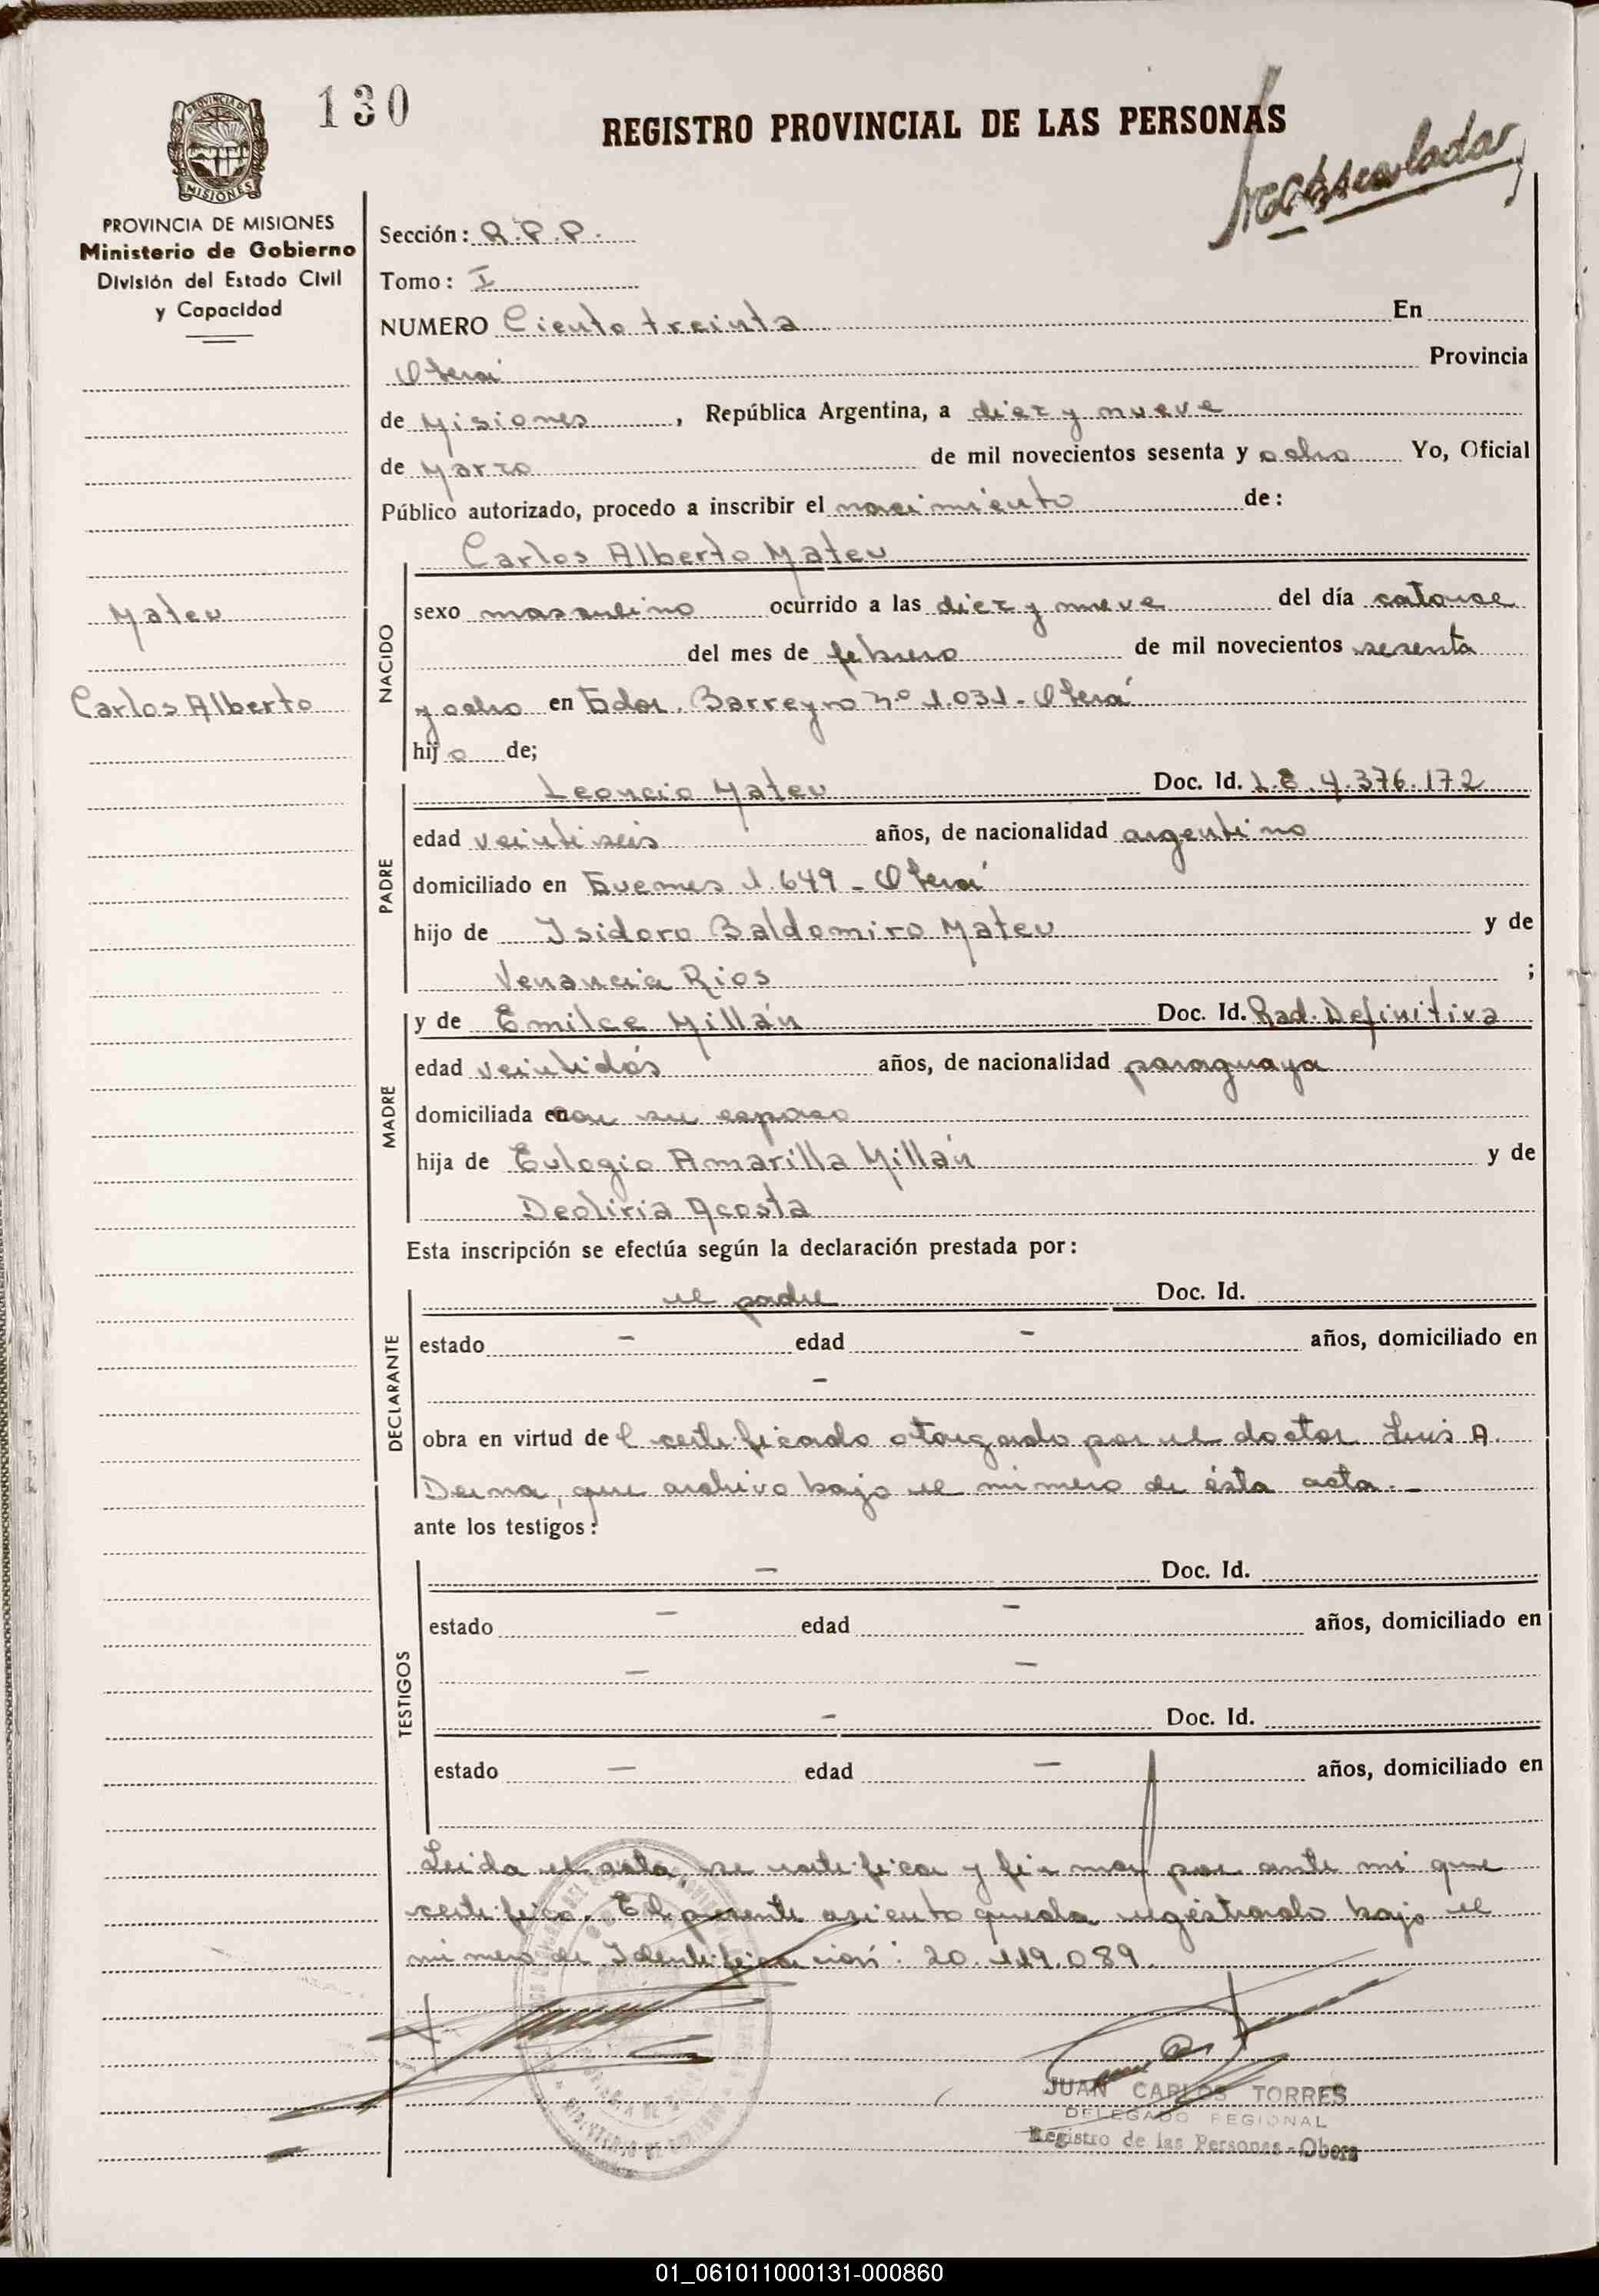 130
REGISTRO PROVINCIAL DE LAS PERSONAS
PROVINCIA DE
MISIONES
PROVINCIA DE MISIONES
Ministerio de Gobierno
División del Estado Civil
y Capacidad
Mateu
Carlos Alberto
Sección: R.P.P.
Tomo: I
NUMERO Ciento treinta En
Oberá Provincia
de Misiones, República Argentina, a diez y nueve
de Marzo de mil novecientos sesenta y ocho Yo, Oficial
Público autorizado, procedo a inscribir el nacimiento de:
Carlos Alberto Mateu
NACIDO
sexo masculino ocurrido a las diez y nueve del día catorce
del mes de febrero de mil novecientos sesenta
y ocho en Gdor. Barreyro nº 1.031 - Oberá
hijo de;
PADRE
Leoncio Mateu Doc. Id. L.E. 4.376.172
edad veintiseis años, de nacionalidad argentino
domiciliado en Guemes 1.649 - Oberá
hijo de Isidoro Baldomiro Mateu y de
Venancia Rios ;
MADRE
y de Emilce Millán Doc. Id. Rad. Definitiva
edad veintidós años, de nacionalidad paraguaya
domiciliada en con su esposo
hija de Eulogio Amarilla Millán y de
Deoliria Acosta
Esta inscripción se efectúa según la declaración prestada por:
DECLARANTE
el padre Doc. Id.
estado - edad - años, domiciliado en
-
obra en virtud del certificado otorgado por el doctor Luis A.
que archivo bajo el número de ésta acta.-
ante los testigos:
TESTIGOS
- Doc. Id.
estado - edad - años, domiciliado en
- -
- Doc. Id.
estado - edad - años, domiciliado en
Leida el acta se ratifican y firman por ante mi que
certifico. El presente asiento queda registrado bajo el
número de Identificación: 20.119.089.
JUAN CARLOS TORRES
DELEGADO REGIONAL
Registro de las Personas - Obera
01_061011000131-000860